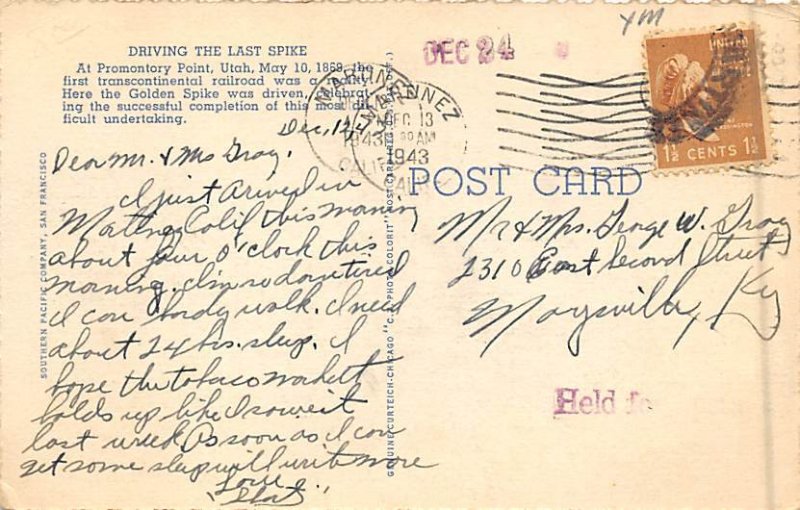 YM
DEC 24
DRIVING THE LAST SPIKE
At Promontory Point, Utah, May 10, 1869, the
first transcontinental railroad was a reality.
Here the Golden Spike was driven, celebrat-
ing the successful completion of this most dif-
ficult undertaking.
MARTINEZ
DEC 13
1943
AM
CALIF.
UNITED
1½ CENTS 1½
POST CARD
Dec, 12,
Dear Mr. & Mrs Gray,
I just arived in
Martinez Calif this morning
about four o'clock this
morning. I'm so darn tired
I can hardly walk. I need
about 24 hrs. sleep. I
hope the tobaco market
holds up like I saw it
last week. As soon as I can
get some sleep will write more
Love
Mr & Mrs. George W. Gray
2310 East Second Street
Maysville, Ky
Held fo
SOUTHERN PACIFIC COMPANY, SAN FRANCISCO
GENUINE CURTEICH-CHICAGO "C.T. PHOTO-COLORIT" POST CARD